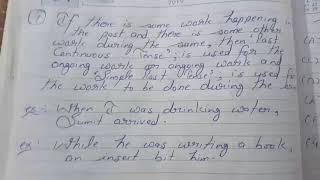 ① If there is some work happening in
the past and there is some other
work during the same, then 'Past
Continuous Tense', is used for the
ongoing work or ongoing work and
'Simple Past Tense', is used for
the work to be done during the
eg:- When I was drinking water,
Sumit arrived.
eg:- While he was writing a book,
an insect bit him.